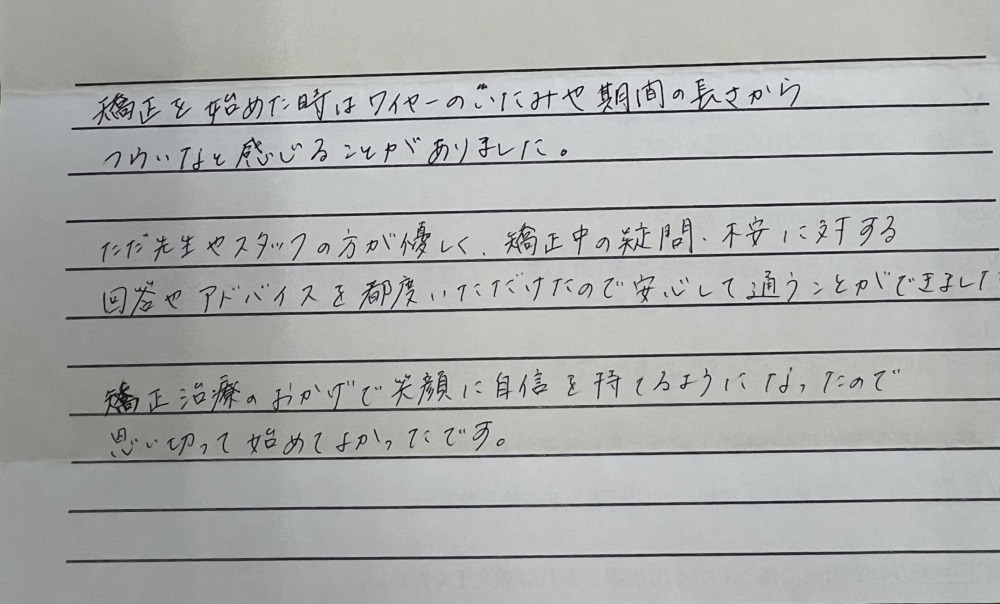 矯正を始めた時はワイヤーのいたみや期間の長さから
つらいなと感じることがありました。
ただ先生やスタッフの方が優しく、矯正中の疑問、不安に対する
回答やアドバイスを都度いただけたので安心して通うことができました
矯正治療のおかげで笑顔に自信を持てるようになったので
思い切って始めてよかったです。